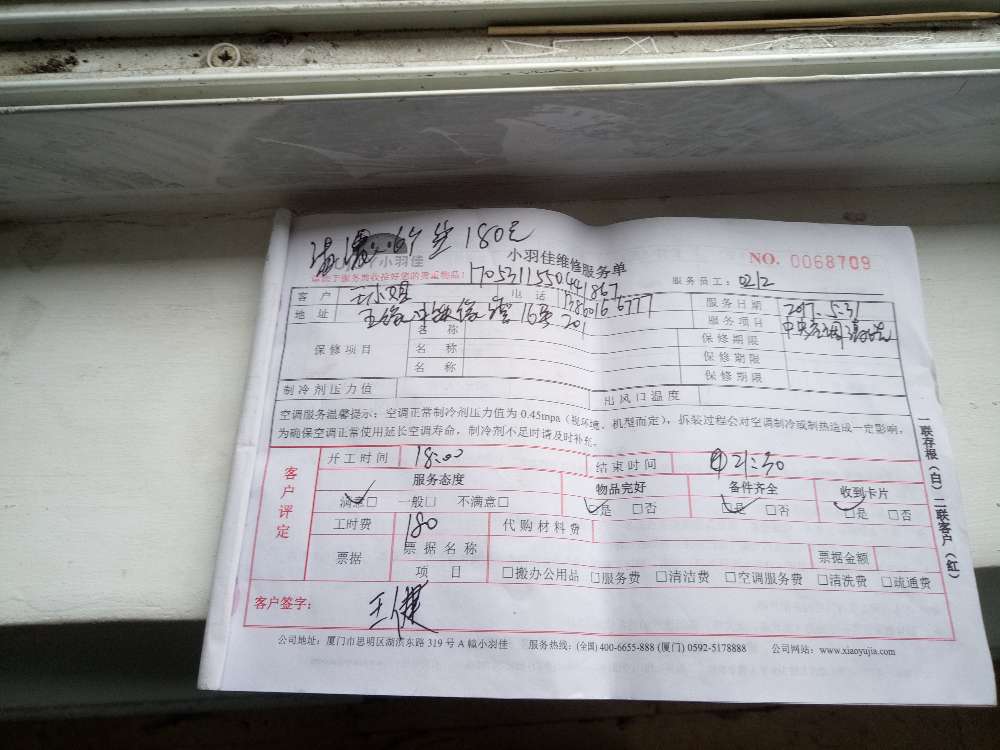 180元
小羽佳
小羽佳维修服务单
NO. 0068709
服务员工: 0212
客户 王小姐 电话
地址 五缘
服务日期 2017.5.31
服务项目 中央空调清洗
保修项目
名称 保修期限
名称 保修期限
名称 保修期限
制冷剂压力值 出风口温度
空调服务温馨提示: 空调正常制冷剂压力值为 0.45mpa (视环境、机型而定), 拆装过程会对空调制冷或制热造成一定影响,
为确保空调正常使用延长空调寿命, 制冷剂不足时请及时补充。
一联存根(白) 二联客户(红)
客户评定
开工时间 18:00 结束时间 21:30
服务态度 物品完好 备件齐全 收到卡片
满意□ 一般□ 不满意□ □是 □否 □是 □否 □是 □否
工时费 180 代购材料费
票据 票据名称 票据金额
项目 □搬办公用品 □服务费 □清洁费 □空调服务费 □清洗费 □疏通费
客户签字:
公司地址: 厦门市思明区湖滨东路 319 号 A 幢小羽佳 服务热线: (全国) 400-6655-888 (厦门) 0592-5178888 公司网站: www.xiaoyujia.com